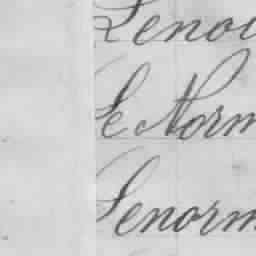 Lenoi
Le Norm
Lenorm